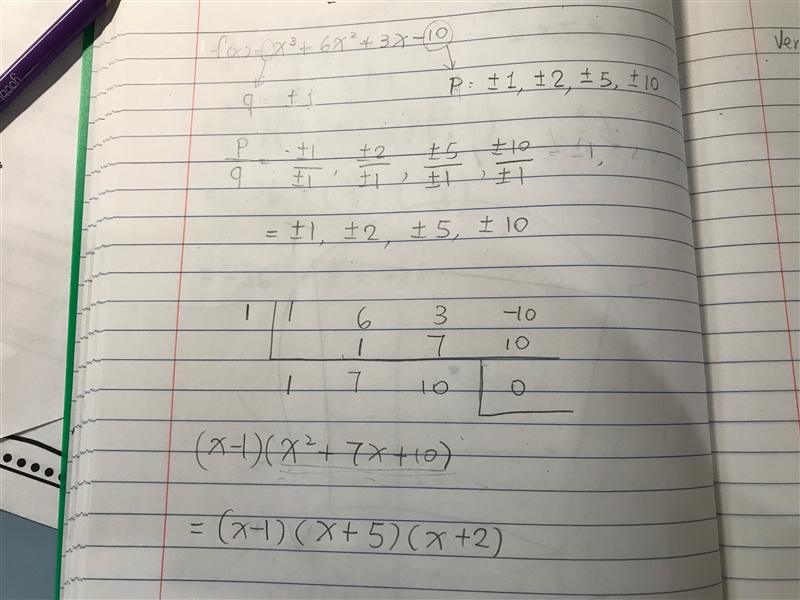 f(x) = x³ + 6x² + 3x - 10
q = ±1 p: ±1, ±2, ±5, ±10
p/q = ±1/±1, ±2/±1, ±5/±1, ±10/±1 = ±1,
= ±1, ±2, ±5, ±10
1 | 1 6 3 -10
1 7 10
1 7 10 | 0
(x-1)(x²+7x+10)
= (x-1)(x+5)(x+2)
Ver